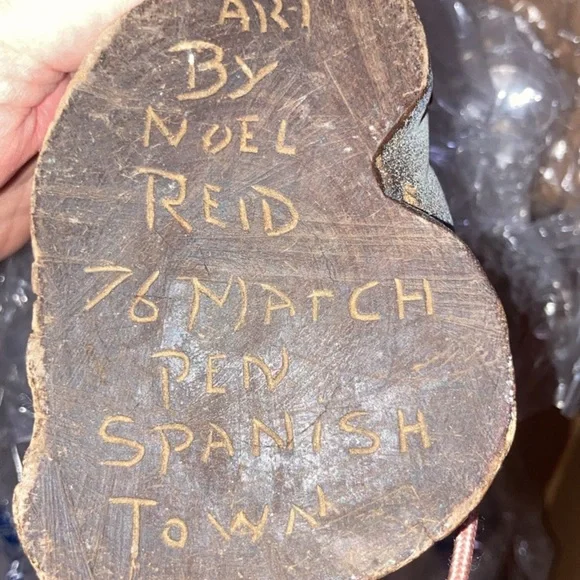 ART
BY
NOEL
REID
76 MARCH
PEN
SPANISH
TOWN